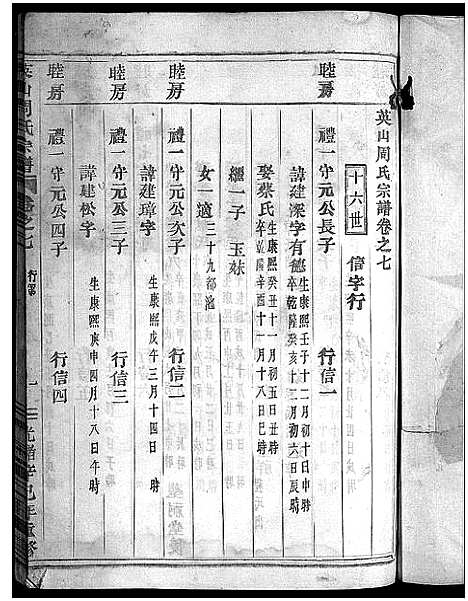 英山周氏宗譜卷之七
十六世 信字行
睦房 禮一守元公長子 行信一
諱建深字有德 生康熙壬子十二月初十日申時 卒乾隆癸亥十二月初六日辰時
娶張氏 生康熙癸丑十一月初五日丑時 卒乾隆辛酉十一月十八日巳時
繼一子 玉妹
女一適 三十九都潘
睦房 禮一守元公次子 行信二
諱建璋字 生康熙戊午三月十四日 時
睦房 禮一守元公三子 行信三
諱建松字 生康熙庚申四月十八日午時
睦房 禮一守元公四子 行信四
英山周氏宗譜 卷之七 行譯